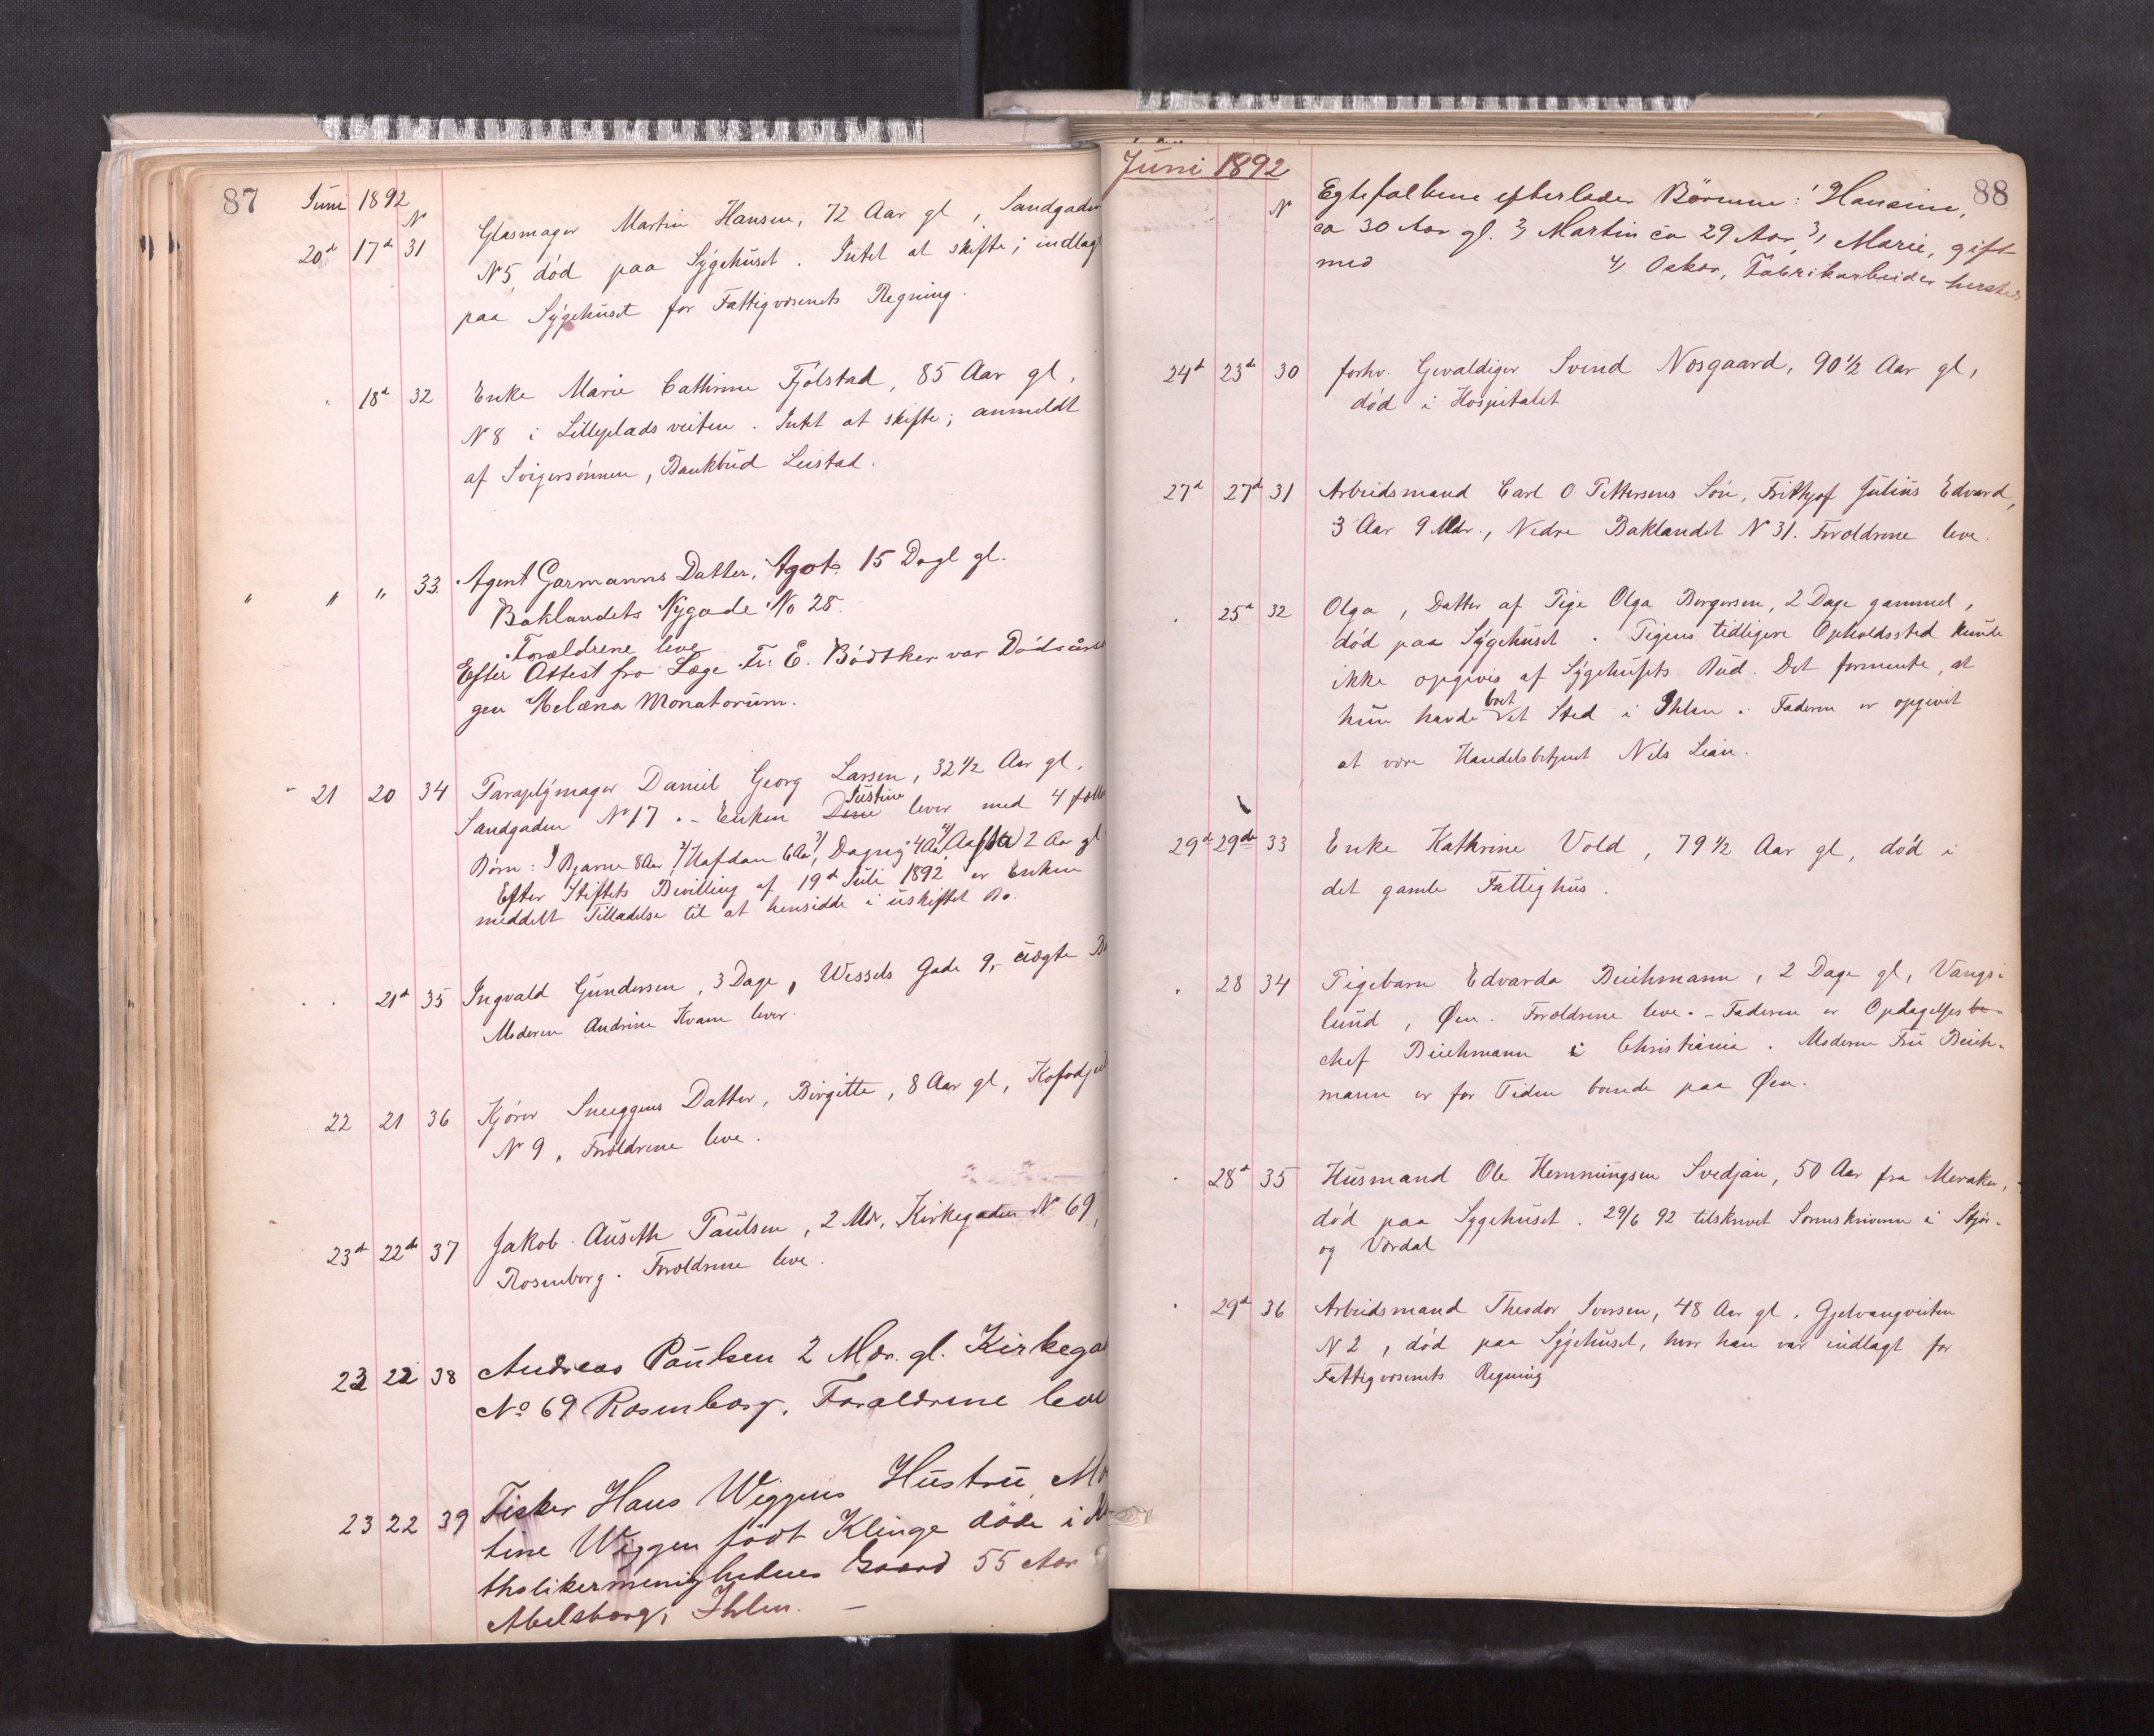 87
Juni 1892
N
20d 17d 31 Glasmager Martin Hansen, 72 Aar gl, Sandgaden
N 5, död paa Sygehuset. Intet at skifte; indlagt
paa Sygehuset for Fattigvæsenets Regning.
18d 32 Enke Marie Cathrine Fjölstad, 85 Aar gl,
N 8 i Lilleplads veiten. Intet at skifte; anmeldt
af Svigersönnen, Bankbud Leistad.
" " " 33. Agent Garmanns Datter, Agot. 15 Dage gl.
Baklandets Nygade No 28.
Forældrene leve
Efter Attest fra Læge Fr: E. Bödtker var Dödsårsa
gen Melæna Monatorum.
21 20 34 Paraplymager Daniel Georg Larsen, 32 1/2 Aar gl,
Sandgaden No 17. - Enken Justine lever med 4 fælles
Børn: 1) Bjarne 8 Aar 2) Hafdan 6 Aar, 3) Dagny 4 Aar, 4) Aasta 2 Aar gl
Efter Stiftets Bevilling af 19d Juli 1892 er Enken
meddelt Tilladelse til at hensidde i uskiftet Bo.
21d 35 Ingvald Gundersen, 3 Dage, Wessels Gade 9, uægte
Moderen Andrine Kvam lever.
22 21 36 Kjörer Sneggens Datter, Birgitte, 8 Aar gl,
N 9, Forældrene leve.
23d 22de 37 Jakob Auseth Paulsen, 2 Mdr, Kirkegaden N 69,
Rosenborg. Forældrene leve.
23 22 38 Andreas Paulsen 2 Mdr. gl. Kirkega
No 69 Rosenborg. Forældrene leve
23 22 39 Fisker Hans Wiggens Hustru,
tine Wiggen födt Klinge döde i
tholikermenighedens Gaard 55 Aar
Abelsborg, Ihlen.
88
Juni 1892
N
Egtefolkene efterlader Börnene: 1) Hansine,
ca 30 Aar gl. 2) Martin ca 29 Aar, 3) Marie, gift
med 4) Oskar, Fabrikarbeider hersteds
24d 23de 30 forhv. Gevaldiger Svend Nosgaard, 90 1/2 Aar gl,
död i Hospitalet
27d 27de 31 Arbeidsmand Carl O Pettersens Sön, Frithjof Julius Edvard,
3 Aar 9 Mdr., Nedre Baklandet N 31. Forældrene leve.
25d 32 Olga, Datter af Pige Olga Borgersen, 2 Dage gammel,
död paa Sygehuset. Pigens tidligere Opholdssted kunde
ikke opgives af Sygehusets Bud. Det formente, at
hun havde boet et Sted i Ihlen. Faderen er opgivet
at være Handelsbetjent Nils Lian.
29de 29de 33 Enke Kathrine Vold, 79 1/2 Aar gl, död i
det gamle Fattighus.
28 34 Pigebarn Edvarda Beichmann, 2 Dage gl, Vangs-
lund, Øen. Forældrene leve. - Faderen er Opdagelses be-
chef Beichmann i Christiania. Moderen Fru Beich-
mann er for Tiden boende paa Øen.
28d 35 Husmand Ole Hemmingsen Svedjan, 50 Aar fra Meraker,
död paa Sygehuset. 29/6 92 tilskrevet Sorenskriveren i Stjör-
og Værdal
29d 36 Arbeidsmand Theodor Iversen, 48 Aar gl. Gjelvangveiten
N 2, död paa Sygehuset, hvor han var indlagt for
Fattigvæsenets Regning